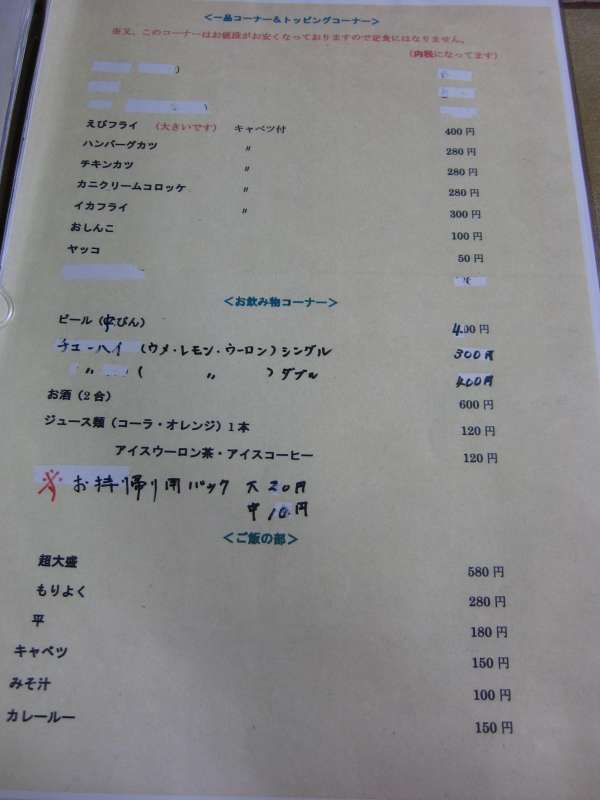 ＜一品コーナー＆トッピングコーナー＞
※又、このコーナーはお値段がお安くなっておりますので定食にはなりません。
（内税になってます）
えびフライ （大きいです） キャベツ付 400円
ハンバーグカツ 〃 280円
チキンカツ 〃 280円
カニクリームコロッケ 〃 280円
イカフライ 〃 300円
おしんこ 100円
ヤッコ 50円
＜お飲み物コーナー＞
ビール（中びん） 400円
チューハイ（ウメ・レモン・ウーロン）シングル 300円
〃（ 〃 ）ダブル 400円
お酒（2合） 600円
ジュース類（コーラ・オレンジ）1本 120円
アイスウーロン茶・アイスコーヒー 120円
※お持帰り用パック 大20円
中10円
＜ご飯の部＞
超大盛 580円
もりよく 280円
平 180円
キャベツ 150円
みそ汁 100円
カレールー 150円